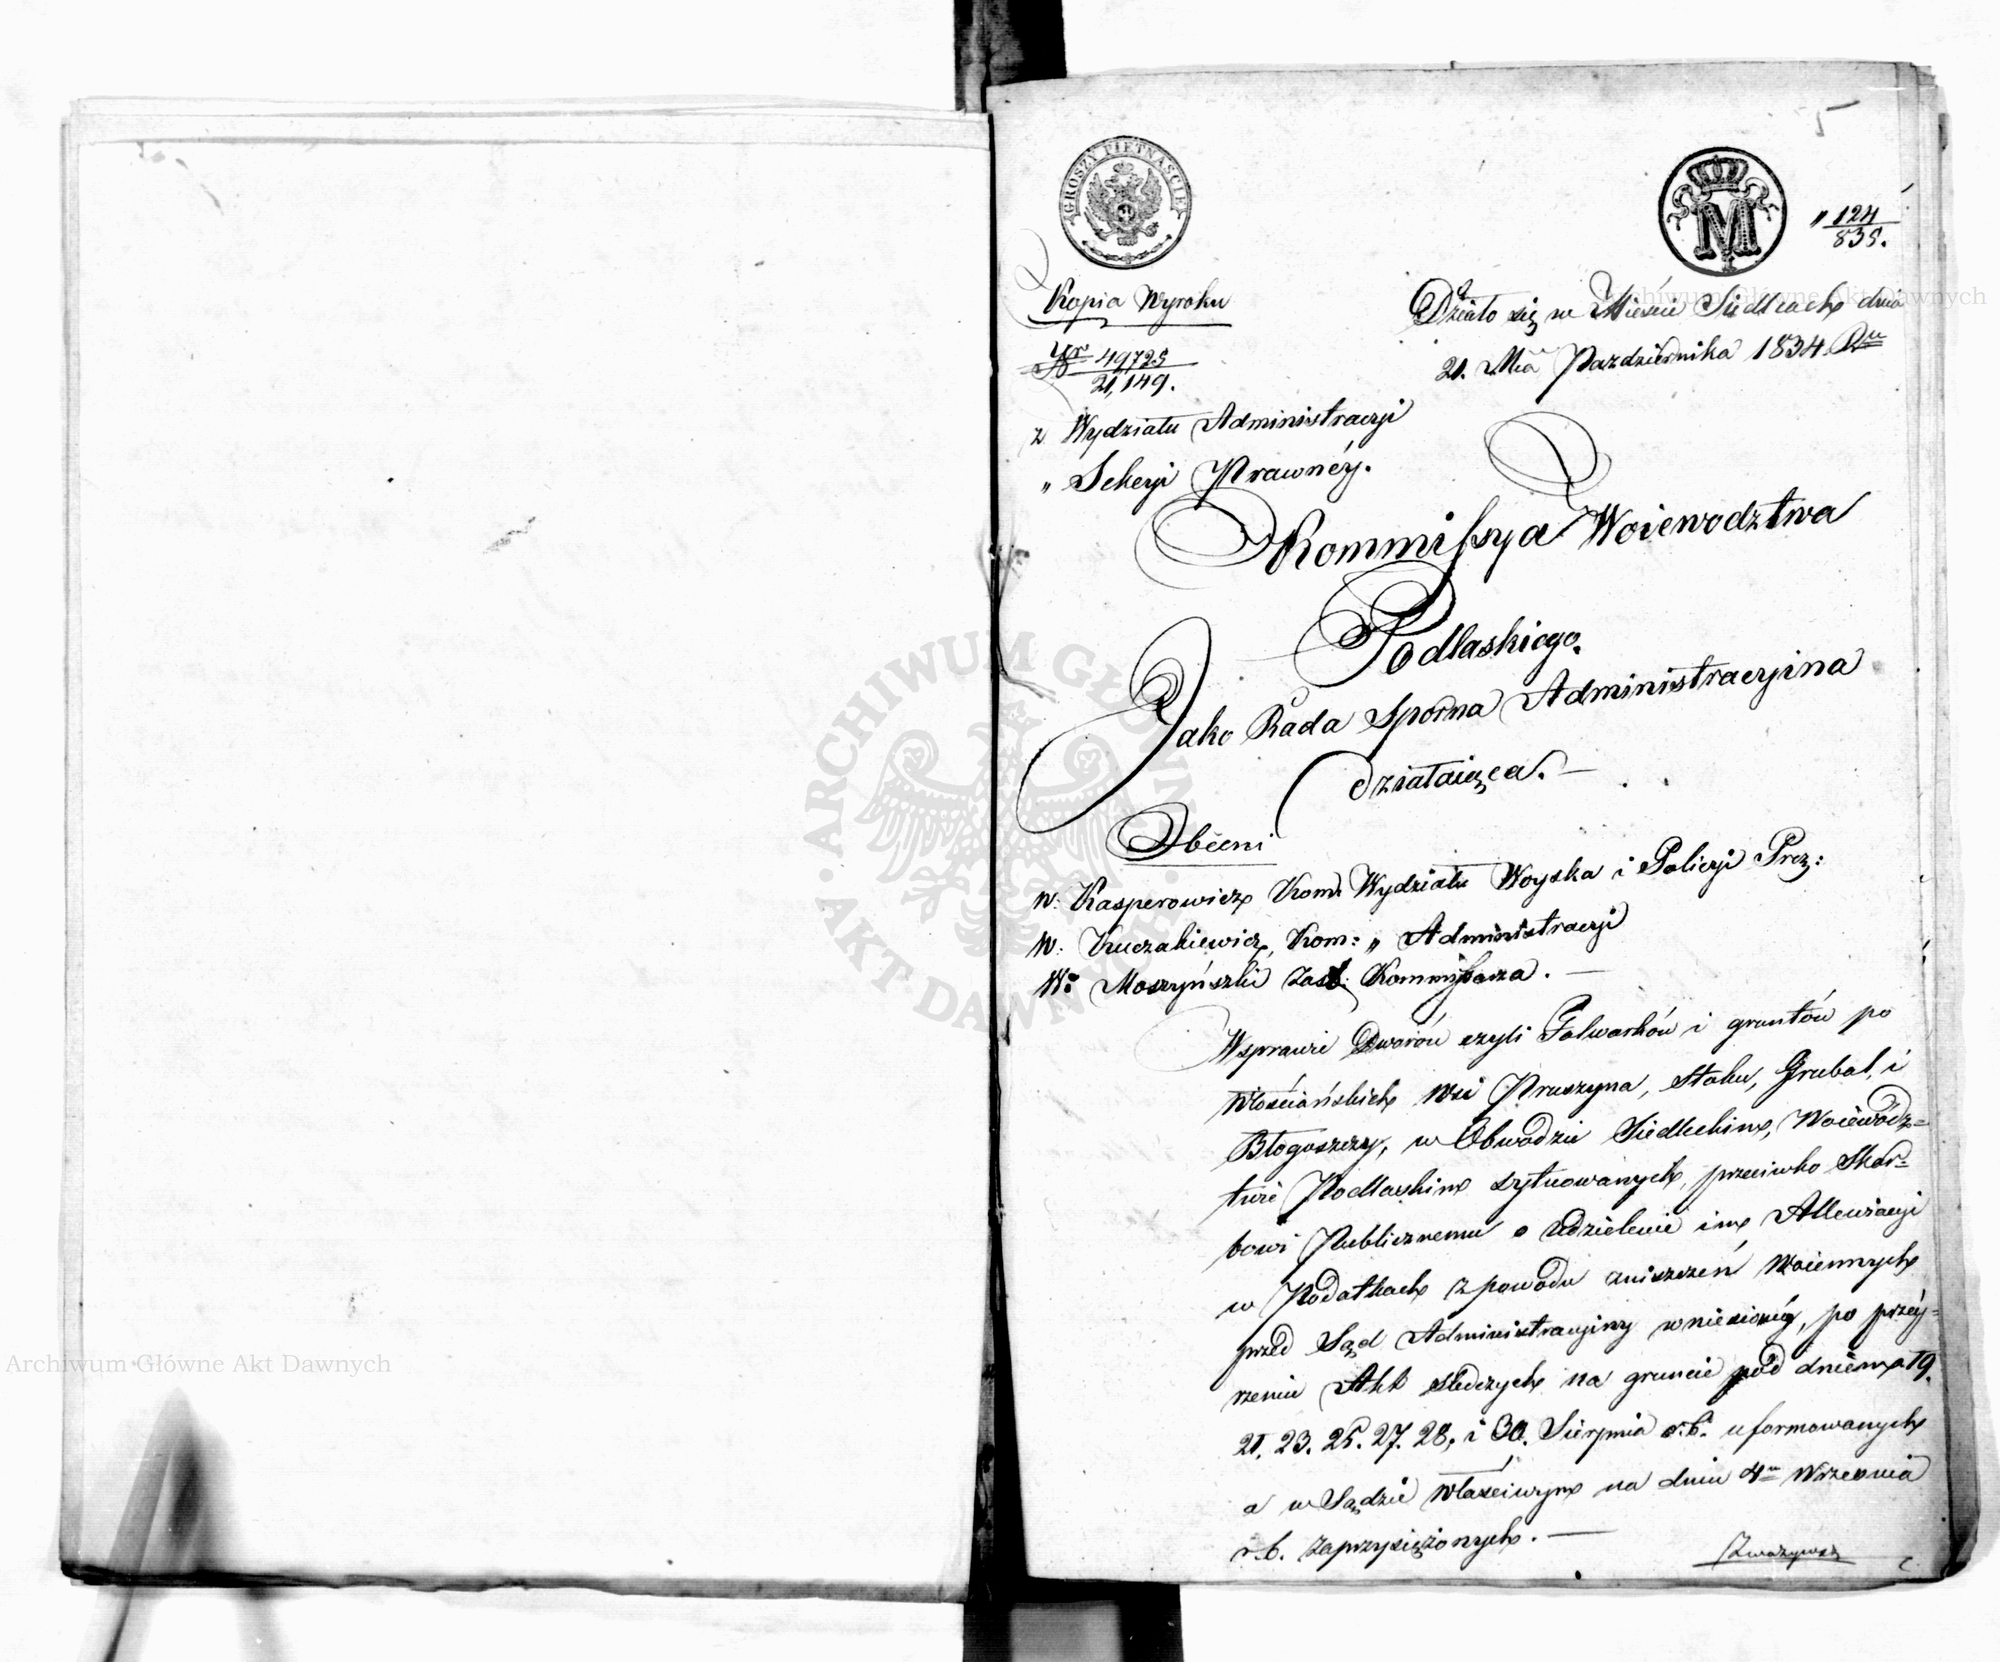 5
GROSZY PIĘTNAŚCIE
M
" 124
835.
Kopia Wyroku
Nr 49725
21,149.
z Wydziału Administracyi
" Sekcyi Prawnéy.
Działo się w Mieście Siedlcach dnia
21. Mca Pazdziernika 1834. Ru
Kommissya Woiewodztwa
Podlaskiego.
Jako Rada Sporna Administracyina
działaiąca. —
Obecni
W. Kasperowicz Kom. Wydziału Woyska i Policyi Prez:
W. Kuczakiewicz, Kom: " Administracyi
W: Moszyński Zast: Kommissarza. —
W sprawie Dworów czyli Folwarków i gruntów po
włościańskich wsi Pruszyna, Stoku, Grubal, i
Błogoszczy, w Obwodzie Siedleckim, Woiewódz=
twie Podlaskim sytuowanych, przeciwko Skar=
bowi Publicznemu o udzielenie im Allewiacyi
w Podatkach z powodu zniszczeń woiennych
przed Sąd Administracyiny wniesionéy, po przéy=
rzeniu Akt śledczych na gruncie pod dniem 19.
21. 23. 25. 27. 28, i 30. Sierpnia r.b. uformowanych
a w Sądzie właściwym na dniu 4n Września
r.b. zaprzysiężonych. —
Zważywszy
ARCHIWUM GŁÓWNE AKT DAWNYCH
Archiwum Główne Akt Dawnych
Archiwum Główne Akt Dawnych